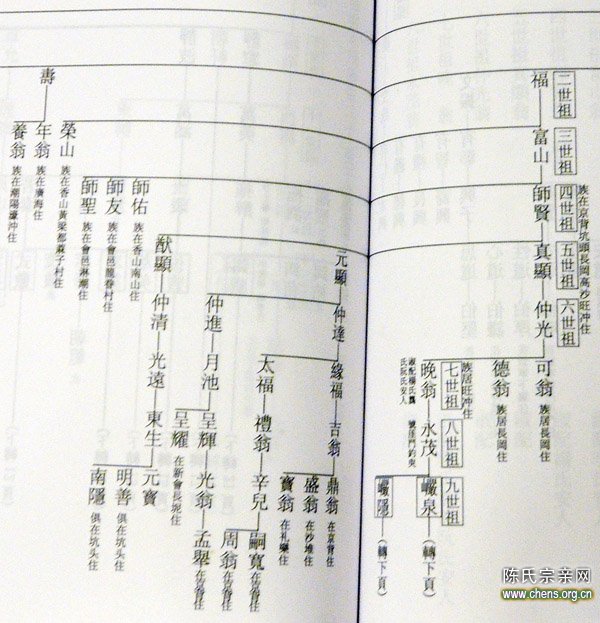 二世祖
三世祖
四世祖
五世祖
六世祖
七世祖
八世祖
九世祖
族在京背坑頭長岡高沙旺冲住
福
富山
師賢
真顯
仲光
可翁
族居長岡住
德翁
族居長岡住
晚翁
族居旺冲住
永茂
巘泉
(轉下頁)
巘隱
(轉下頁)
元顯
仲達
緣福
吉翁
鼎翁
在京背住
盛翁
在沙堆住
寶翁
在礼樂住
太福
禮翁
辛兒
嗣寬
在京背住
周翁
在京背住
仲進
月池
呈輝
光翁
孟舉
在京背住
呈耀
在新會長坭住
猷顯
仲清
光遠
東生
元寶
明善
俱在坑头住
南隱
俱在坑头住
師佑
族在香山南山住
師友
族在會邑龍眷村住
師聖
族在會邑淋潮住
壽
榮山
族在香山黃梁都蔴子村住
年翁
族在廣海住
養翁
族在潮陽濠沖住
陈氏宗亲网
www.chens.org.cn